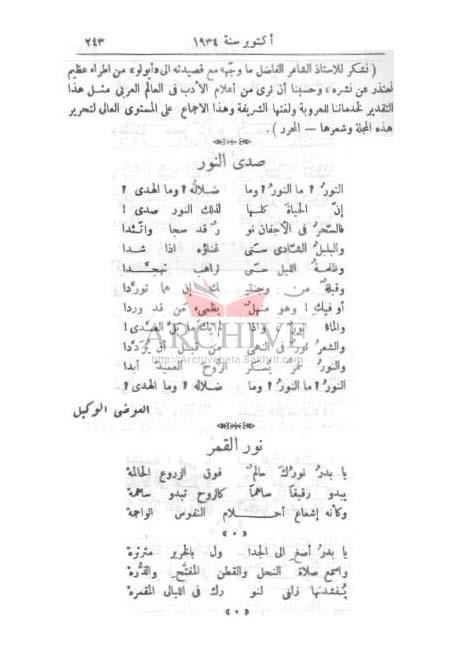 أكتوبر سنة ١٩٣٤ ٢٤٣
( نشكر للاستاذ الشاعر الفاضل ما وجّهه مع قصيدته الى «أبولو» من اطراء عظيم
نعتذر عن نشره ، وحسبنا أن نرى من أعلام الأدب فى العالم العربى مثل هذا
التقدير لخدماتنا للعروبة ولغتها الشريفة وهذا الاجماع على المستوى العالى لتحرير
هذه المجلة وشعرها — المحرر ) .
صدى النور
النورُ ؟ ما النور ؟ وما ضلالُهُ ؟ وما الهدى ؟
إنّ الحياة كلها لذلك النور صدى !
فالسّحرُ فى الأجفان نو رٌ قد سجا واتّئدا
والبلبلُ الشادى سنى غناؤه اذا شدا
وظلمة الليل سنى لراهب تهجّدا
وقبلة من وجنتيـ ـك إن هما تورّدا
أو فيكِ ! وهو منهلٌ يظمىء من قد وردا
والماء نور واذا
والشعر نورٌ فى النهى من قبل أن يُردّدا
والنور خمر يُسكر الروح العميد أبدا
النور ؟ ما النور ؟ وما ضلاله ؟ وما الهدى ؟
العوضى الوكيل
ARCHIVE
http://Archivebeta.Sakhrit.com
نور القمر
يا بدرُ نورُكَ حالمٌ فوق الزروع الحالمة
يبدو رقيقاً ساهماً كالروح تبدو ساهمة
وكأنه إشعاع أحـــلام النفوس الواجمة
يا بدرُ أصغِ الى الجدا ول بالخرير مثرثرة
واسمع صلاة النحل والقطن المفتّح والذّرة
يُنشدنها زلفى لنو رك فى الليالى المقمرة